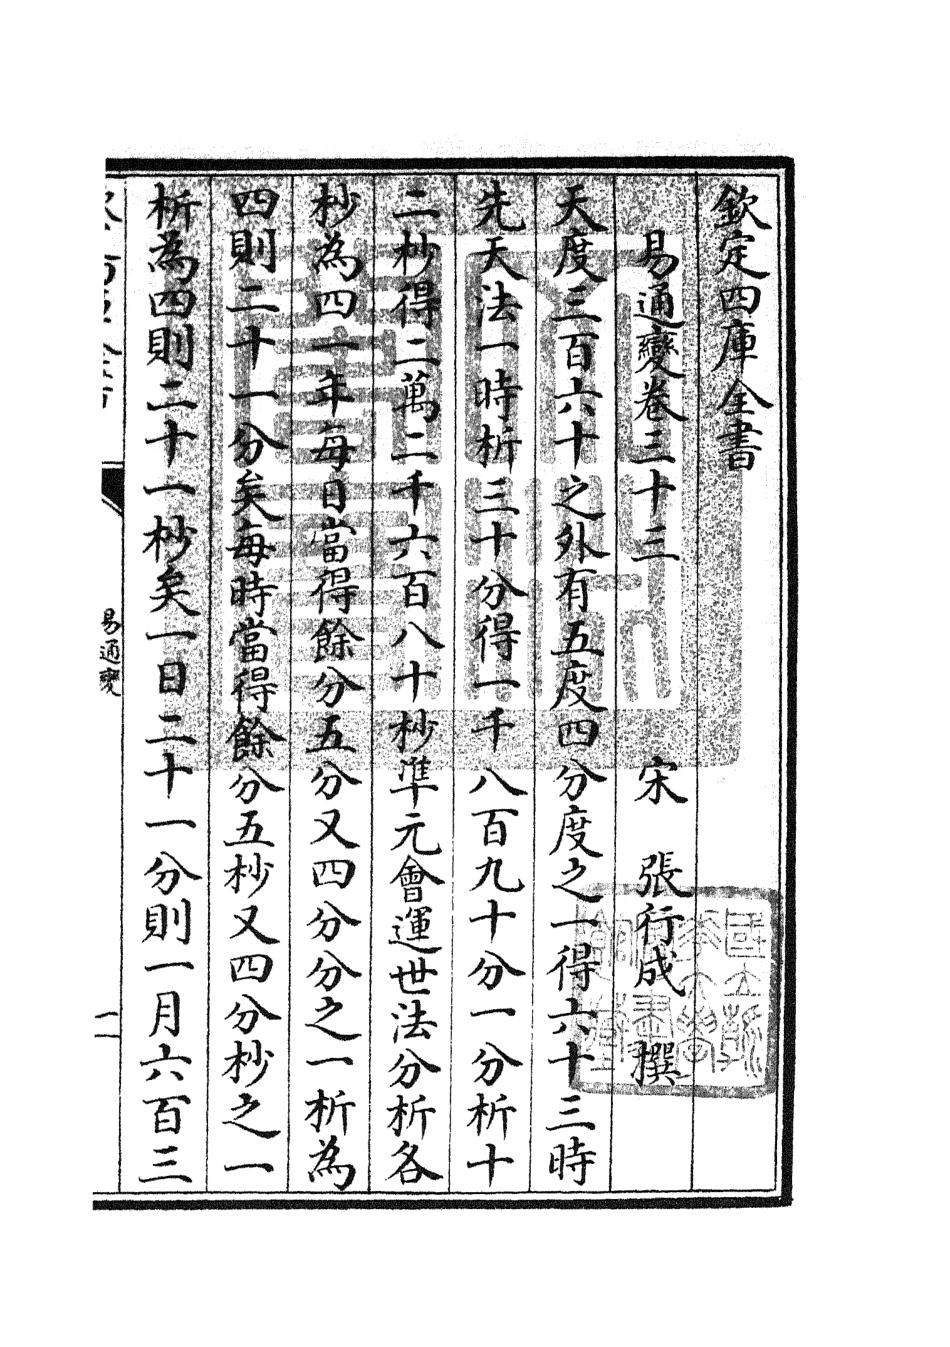 欽定四庫全書
易通變卷三十三
宋 張行成 撰
天度三百六十之外有五度四分度之一得六十三時
先天法一時析三十分得一千八百九十分一分析十
二秒得二萬二千六百八十秒準元會運世法分析各
秒為四一年每日當得餘分五分又四分分之一析為
四則二十一分矣每時當得餘分五秒又四分秒之一
析為四則二十一秒矣一日二十一分則一月六百三
易通變
一